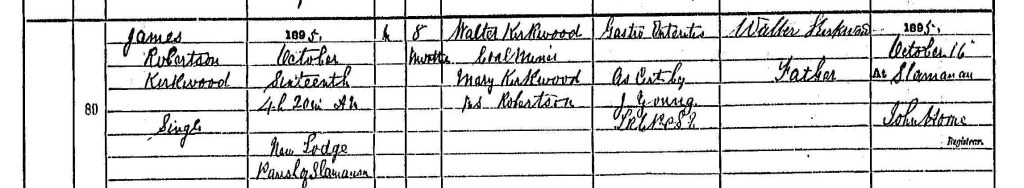 80
James
Robertson
Kirkwood
Single
1895.
October
Sixteenth
4h 20m AM
New Lodge
Parish of Slamannan
M
8
Months
Walter Kirkwood
Coal Miner
Mary Kirkwood
ms Robertson
Gastro Enteritis
As Cert by
J Young
Walter Kirkwood
Father
1895.
October 16
At Slamannan
John Horne
Registrar.